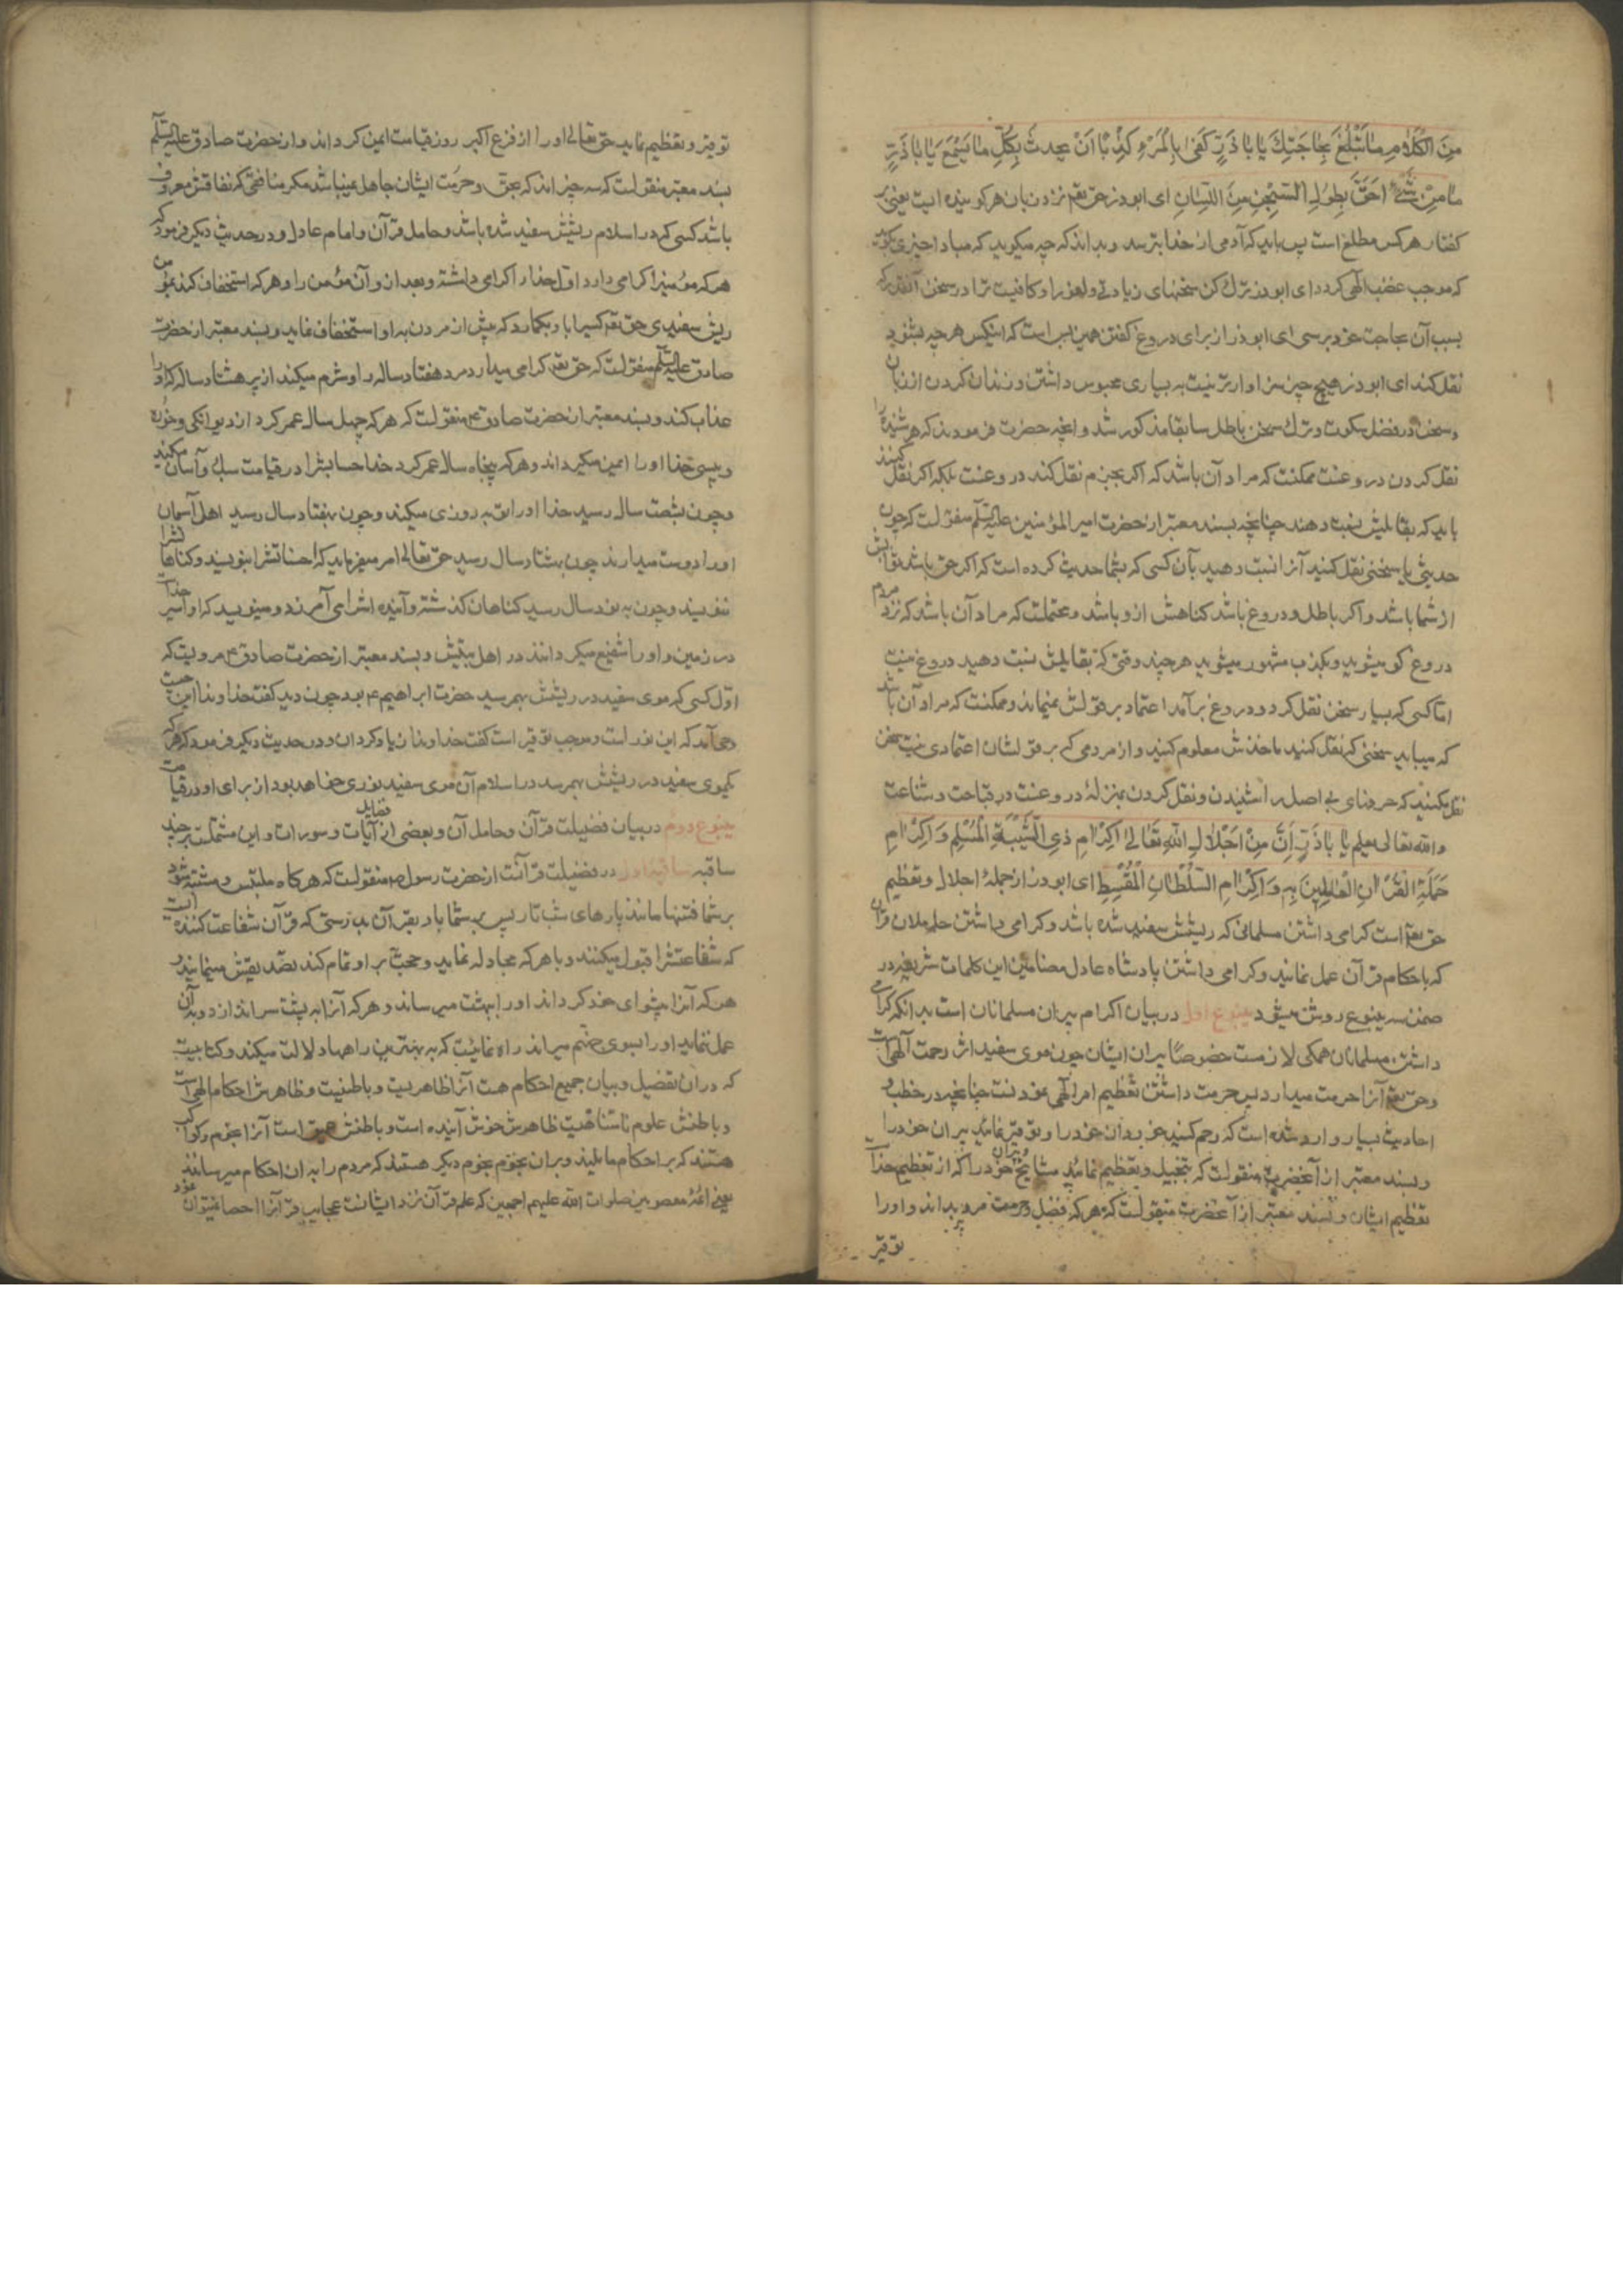 مِنَ الْكَلَامِ مَا تَبْلُغُ بِهِ حَاجَتَكَ يَا بَا ذَرٍّ كَفَى بِالْمَرْءِ كَذِبًا اَنْ يُحدِثَ بِكُلِّ مَا يَسْمَعُ يَا بَا ذَرٍّ
مَا مِنْ شَىْءٍ اَحَقَّ بِطُولِ السِّجْنِ مِنَ اللِّسَانِ ای ابوذر حق تعم نزد زبان هر کوینده ایست یعنی بر
کفتار هر کس مطلع است پس باید که آدمی از خدا بترسد و بداند که چه میکوید که مبادا چیزی کوید
که موجب غضب الهی کردد ای ابوذر ترک کن سخنهای زیادتی و لغو را و کافیست ترا در سخن آنقدر که
بسبب آن بحاجت خود برسی ای ابوذر از برای دروغ کفتن همین بس است که اینکس هر چه بشنود
نقل کند ای ابوذر هیچ چیز سزاوارتر نیست به بسیاری محبوس داشتن و زندان کردن از زبان
و سخن در فضل سکوت و ترک سخن باطل سابقا مذکور شد و آنچه حضرت فرمودند که هر شنیده را
نقل کردن دروغست ممکنست که مراد آن باشد که اکر بجزم نقل کند دروغست بلکه اکر نقل کنند
باید که بقایلش نسبت دهند چنانچه بسند معتبر از حضرت امیر المؤمنین علیه السلم منقولست که چون
حدیثی یا سخنی نقل کنید آنرا نسبت دهید بآن کسی که بشما حدیث کرده است که اکر حق باشد ثوابش
از شما باشد و اکر باطل و دروغ باشد کناهش از و باشد و محتملست که مراد آن باشد که نزد مردم
دروغ کو میشوید و بکذب مشهور میشوید هر چند وقتی که بقایلش نسبت دهید دروغ نیست
امّا کسی که بسیار سخن نقل کرد و دروغ برآمد اعتماد بر قولش نمیماند و ممکنست که مراد آن باشد
که میباید سخنی که نقل کنید ماخذش معلوم کنید و از مردمی که بر قولشان اعتمادی نیست سخن
نقل نکنید که حرفهای بی اصل را شنیدن و نقل کردن بمنزلهٔ دروغست در قباحت و شناعت
والله تعالی یعلم یَا بَا ذَرٍّ اِنَّ مِنْ اِجْلَالِ اللّٰهِ تَعَالٰی اِكْرَامِ ذِی الشَّیْبَةِ الْمُسْلِمِ وَ اِكْرَامِ
حَمَلَةِ الْقُرْآنِ الْعَامِلِینَ بِهِ وَ اِكْرَامِ السُّلْطَانِ الْمُقْسِطِ ای ابوذر از جملهٔ اجلال و تعظیم
حق تعم است کرامی داشتن مسلمانی که ریشش سفید شده باشد و کرامی داشتن حاملان قرآن
که باحکام قرآن عمل نمایند و کرامی داشتن پادشاه عادل مضامین این کلمات شریفه در
ضمن سه ینبوع روشن میشود ینبوع اول در بیان اکرام پیران مسلمانان است بدانکه کرامی
داشتن مسلمانان همکی لازمست خصوصًا پیران ایشان چون موی سفید اثر رحمت الهی است
و حق تعم آنرا حرمت میدارد پس حرمت داشتن تعظیم امر الهی نمودنست چنانچه در خطب و
احادیث بسیار وارد شده است که رحم کنید خوردان خود را و توقیر نمائید پیران خود را
و بسند معتبر از آنحضرت منقولست که تبجیل و تعظیم نمائید مشایخ و پیران خود را که از تعظیم خداست
تعظیم ایشان و بسند معتبر از آنحضرت منقولست که هر که فضل و حرمت مرد پیر بداند و او را
توقیر
توقیر و تعظیم نماید حق تعالی او را از فزع اکبر روز قیامت ایمن کرداند و از حضرت صادق علیه السلم
بسند معتبر منقولست که سه چیزاند که بحق و حرمت ایشان جاهل نمیباشد مکر منافقی که نفاقش معروف
باشد کسی که در اسلام ریشش سفید شده باشد و حامل قرآن و امام عادل و در حدیث دیکر فرمود که
هر که مؤمنیرا کرامی دارد اوّل خدا را کرامی داشته و بعد از و آن مؤمن را و هر که استخفاف کند بمؤمن
ریش سفیدی حق تعم کسیرا باو بکمارد که پیش از مردن به او استخفاف نماید و بسند معتبر از حضرت
صادق علیه السلم منقولست که حق تعم کرامی میدارد مرد هفتاد ساله را و شرم میکند از پیر هشتاد ساله که او را
عذاب کند و بسند معتبر از حضرت صادق ع منقولست که هر که چهل سال عمر کرد از دیوانکی و خوره
و پیسی خدا او را ایمن میکرداند و هر که پنجاه سال عمر کرد خدا حسابشرا در قیامت سبک و آسان میکند
و چون بشصت سال رسید خدا او را توبه روزی میکند و چون بهفتاد سال رسید اهل آسمان
او را دوست میدارند چون بهشتاد سال رسید حق تعالی امر میفرماید که حسناتشرا بنویسند و کناهانشرا
ننویسند و چون به نود سال رسید کناهان کذشته و آینده اشرا می آمرزند و مینویسند که او اسیر خداست
در زمین و او را شفیع میکردانند در اهل بیتش و بسند معتبر از حضرت صادق ع مرویست که
اوّل کسی که موی سفید در ریشش بهمرسید حضرت ابراهیم ع بود چون دید کفت خداوندا این چیست
وحی آمد که این نورست و موجب توقیر است کفت خداوندا زیاد کردان و در حدیث دیکر فرمود که هر که
یکموی سفید در ریشش بهمرسد در اسلام آن موی سفید نوری خواهد بود از برای او در قیامت
ینبوع دوم در بیان فضیلت قرآن و حامل آن و بعضی از فضایل آیات و سورات و این مشتملست بر چند
ساقیه ساقیه اول در فضیلت قرآنست از حضرت رسول ص منقولست که هر کاه ملتبس و مشتبه شود
بر شما فتنها مانند پارهای شب تار پس بر شما باد بقرآن بدرستی که قرآن شفاعت کننده ایست
که شفاعتشرا قبول میکنند و با هر که مجادله نماید و حجّت بر او تمام کند تصدیقش مینمایند و
هر که آنرا پیشوای خود کرداند او را ببهشت میرساند و هر که آنرا به پشت سر اندازد و به آن
عمل ننماید او را بسوی جهنّم میراند راه نمائیست که به بهترین راهها دلالت میکند و کتابیست
که در ان تفصیل و بیان جمیع احکام هست آنرا ظاهریست و باطنیست و ظاهرش احکام الهی است
و باطنش علوم نامتناهیست ظاهرش خوش آینده است و باطنش عمیق است آنرا نجوم و کواکب
هستند که بر احکام ما نلیند و بر ان نجوم نجوم دیکر هستند که مردم را به ان احکام میرسانند
یعنی ائمهٔ معصومین صلوات الله علیهم اجمعین که علم قرآن نزد ایشانست عجایب قرآنرا احصا نمیتوان نمود